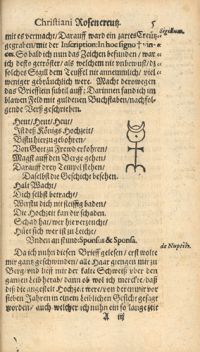 Christiani Rosencreutz. 5
mit es vermacht/ Darauff ward ein zartes Creutz
gegraben/ mit der Inscription: In hoc signo † vin-
ces. So bald ich nun das Zeichen befunden/ war
ich desto getröster/ als welchem nit unbewust/ dz
solches Sigill dem Teuffel nit annemmlich/ viel
weniger gebräuchlich were. Macht derowegen
das Brieflein subtil auff; Darinnen fand ich im
blawen Feld mit guldenen Buchstaben/ nachfol-
gende Verß geschrieben.
Sigillum.
Heut/ Heut/ Heut/
Ist deß Königs Hochzeit/
Bistu hier zu gebohren/
Von Gott zu Frewd erkohren/
Magst auff den Berge gehen/
Darauff drey Tempel stehen/
Daselbst die Geschicht besehen.
Halt Wacht/
Dich selbst betracht/
Wirstu dich nit fleissig baden/
Die Hochzeit kan dir schaden.
Schad hat/ wer hie verzeucht/
Hüet sich wer ist zu Leicht/
Unden an stund Sponsus & Sponsa.
Da ich nuhn diesen Brieff gelesen/ erst wolte
de Nuptiis.
mir gantz geschwunden/ alle Haar giengen mir zu
Berg/ und lieff mir der kalte Schweiß über den
gantzen Leib herab/ dann ob wol ich merckt/ daß
diß die angestelte Hochzeit were/ deren mir vor
sieben Jahren in einem Leiblichen Gesicht gesagt
worden/ auch welcher ich nuhn ein so lange zeit
A iij